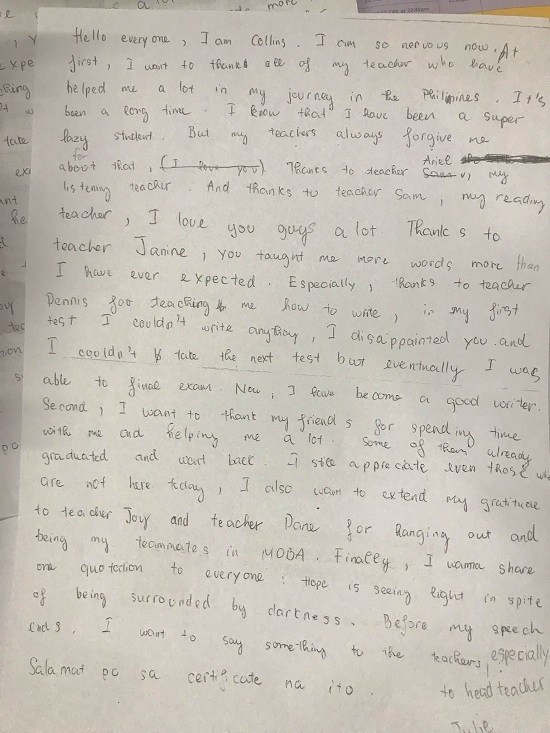 Hello everyone, I am Collins. I am so nervous now. At
first, I want to thanks all of my teacher who have
helped me a lot in my journey in the Philipines. It's
been a long time. I know that I have been a super
lazy student. But my teachers always forgive me
for about that, (I love you) Thanks to teacher Ariel, my
listening teacher. And thanks to teacher Sam, my reading
teacher, I love you guys a lot. Thanks to
teacher Janine, you taught me more words more than
I have ever expected. Especially, thanks to teacher
Dennis for teaching me how to write, in my first
test I couldn't write anything, I disappainted you and
I couldn't take the next test but eventually I was
able to final exam. Now, I have become a good writer.
Second, I want to thank my friends for spending time
with me and helping me a lot. Some of them already
graduated and went back. I still appreciate even those who
are not here today, I also want to extend my gratitude
to teacher Jovy and teacher Dane for Hanging out and
being my teammates in MOBA. Finally, I wanna share
one quotation to everyone: Hope is seeing light in spite
of being surrounded by darkness. Before my speech
ends, I want to say something to the teachers, especially
to head teacher
Julie
Salamat po sa certificate na ito.